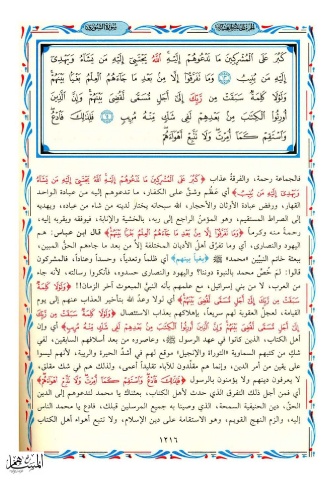 سورة الشورى
كَبُرَ عَلَى الْمُشْرِكِينَ مَا تَدْعُوهُمْ إِلَيْهِ اللَّهُ يَجْتَبِي إِلَيْهِ مَن يَشَاءُ وَيَهْدِي
إِلَيْهِ مَن يُنِيبُ ﴿١٣﴾ وَمَا تَفَرَّقُوا إِلَّا مِن بَعْدِ مَا جَاءَهُمُ الْعِلْمُ بَغْيًا بَيْنَهُمْ
وَلَوْلَا كَلِمَةٌ سَبَقَتْ مِن رَّبِّكَ إِلَى أَجَلٍ مُّسَمًّى لَّقُضِيَ بَيْنَهُمْ وَإِنَّ الَّذِينَ
أُورِثُوا الْكِتَابَ مِن بَعْدِهِمْ لَفِي شَكٍّ مِّنْهُ مُرِيبٍ ﴿١٤﴾ فَلِذَلِكَ فَادْعُ
وَاسْتَقِمْ كَمَا أُمِرْتَ وَلَا تَتَّبِعْ أَهْوَاءَهُمْ
فالجماعة رحمة، والفرقة عذاب ﴿كَبُرَ عَلَى الْمُشْرِكِينَ مَا تَدْعُوهُمْ إِلَيْهِ اللَّهُ يَجْتَبِي إِلَيْهِ مَن يَشَاءُ
وَيَهْدِي إِلَيْهِ مَن يُنِيبُ﴾ أي عظُم وشقَّ على الكفار، ما تدعوهم إليه من عبادة الواحد
القهار، ورفض عبادة الأوثان والأحجار، الله سبحانه يختار لدينه من شاء من عباده، ويهديه
إلى الصراط المستقيم، وهو المؤمن الراجع إلى ربه، بالخشية والإنابة، فيوفقه ويقربه إليه،
رحمة منه وكرماً ﴿وَمَا تَفَرَّقُوا إِلَّا مِن بَعْدِ مَا جَاءَهُمُ الْعِلْمُ بَغْيًا بَيْنَهُمْ﴾ قال ابن عباس: هم
اليهود والنصارى، أي وما تفرَّق أهل الأديان المختلفة إلاَّ من بعد ما جاءهم الحق المبين،
ببعثة خاتم النبيِّين «محمد» ﷺ ﴿بغياً بينهم﴾ أي ظلماً وتعدياً، وحسداً وعناداً، فالمشركون
قالوا: لمَ خُصَّ محمد بالنبوة دوننا؟ واليهود والنصارى حسدوه، فأنكروا رسالته، لأنه جاء
من العرب، لا من بني إسرائيل، مع علمهم بأنه النبيُّ المبعوث آخر الزمان!! ﴿وَلَوْلَا كَلِمَةٌ
سَبَقَتْ مِن رَّبِّكَ إِلَى أَجَلٍ مُّسَمًّى لَّقُضِيَ بَيْنَهُمْ﴾ أي لولا وعدُ الله بتأخير العذاب عنهم إلى يوم
القيامة، لعجل العقوبة لهم سريعاً، بإهلاكهم بعذاب الاستئصال ﴿وَلَوْلَا كَلِمَةٌ سَبَقَتْ مِن رَّبِّكَ
إِلَى أَجَلٍ مُّسَمًّى لَّقُضِيَ بَيْنَهُمْ وَإِنَّ الَّذِينَ أُورِثُوا الْكِتَابَ مِن بَعْدِهِمْ لَفِي شَكٍّ مِّنْهُ مُرِيبٍ﴾ أي وإن
أهل الكتاب، الذين كانوا في عهد الرسول ﷺ، وعاصروه من بعد أسلافهم السابقين، لفي
شكٍّ من كتبهم السماوية «التوراة والإنجيل» موقع لهم في أشدّ الحيرة والريبة، لأنهم ليسوا
على يقين من أمر الدين، وإنما هم مقلِّدون للآباء تقليداً أعمى، ولذلك هم في شك مقلق،
لا يعرفون دينهم ولا يؤمنون بالرسول ﴿فَلِذَلِكَ فَادْعُ وَاسْتَقِمْ كَمَا أُمِرْتَ وَلَا تَتَّبِعْ أَهْوَاءَهُمْ﴾
أي فمن أجل ذلك التفرق الذي حدث لأهل الكتاب، بعثناك يا محمد لتدعوهم إلى الدين
الحقّ، دين الحنيفية السمحة، الذي وصينا به جميع المرسلين قبلك، فادع يا محمد الناس
إليه، والزم النهج القويم، وهو الاستقامة على دين الإسلام، ولا تتبع أهواء أهل الكتاب
١٢١٦